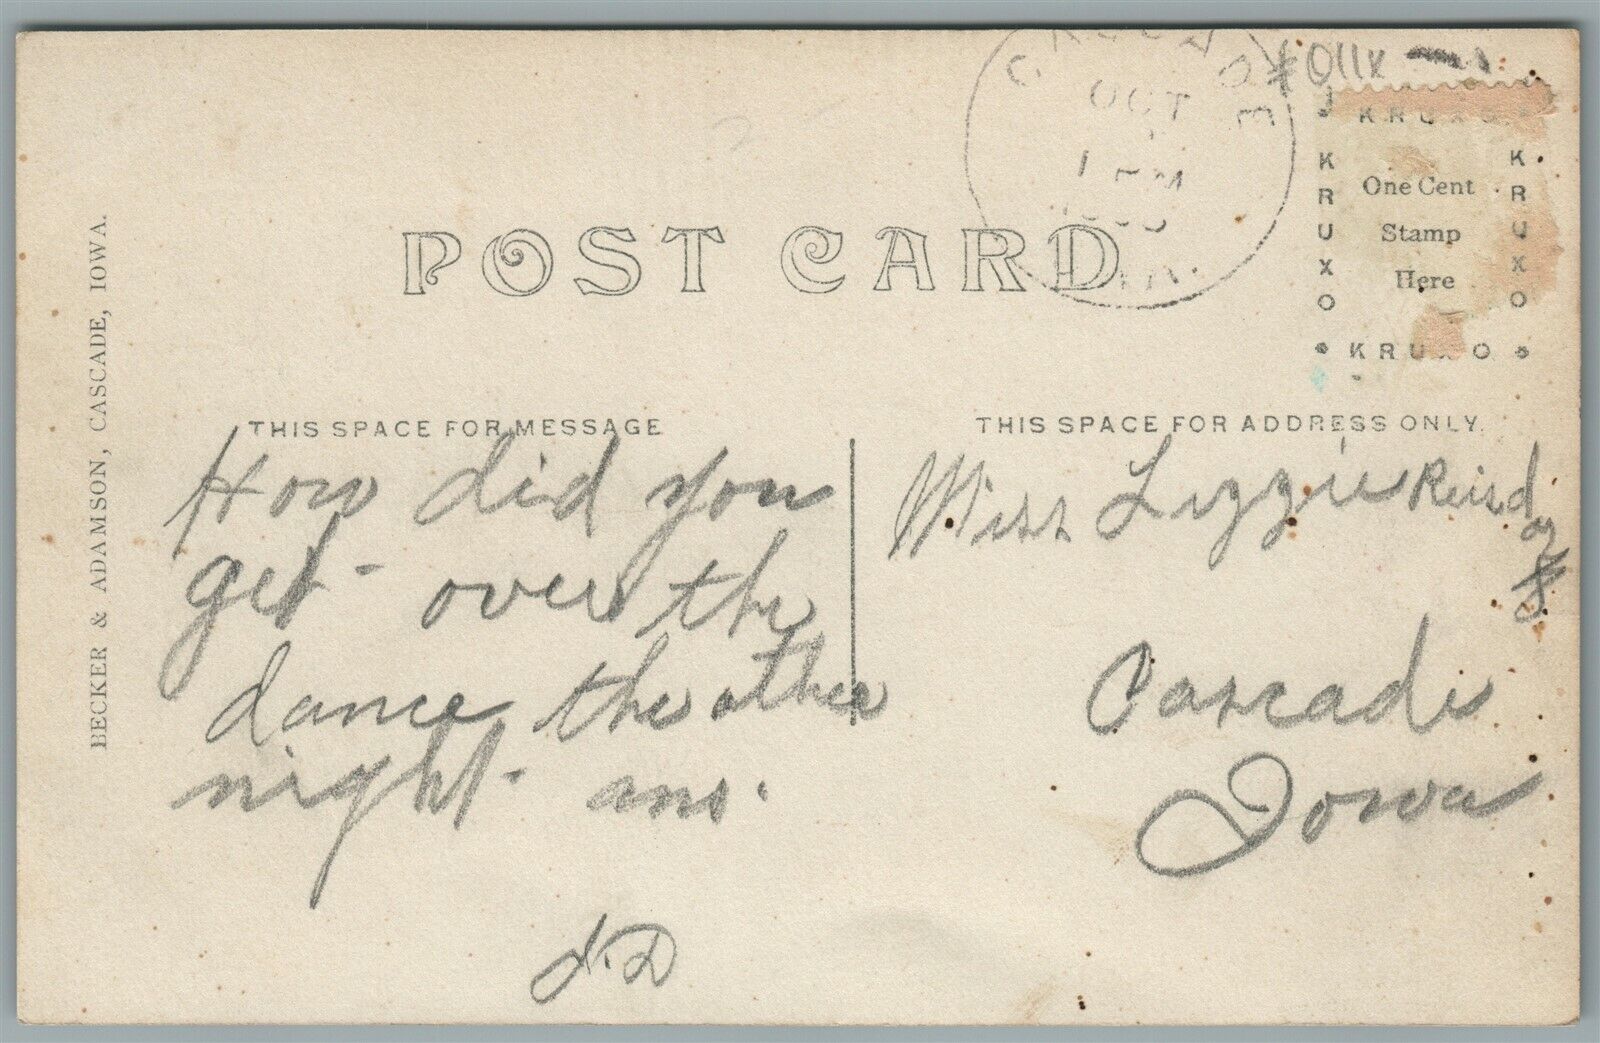 OCT
POST CARD
KRUXO
KRUXO
One Cent
Stamp
Here
KRUXO
KRUXO
BECKER & ADAMSON, CASCADE, IOWA.
THIS SPACE FOR MESSAGE
How did you
get over the
dance the other
night. ans.
J.D
THIS SPACE FOR ADDRESS ONLY.
Miss Lizzie
Cascade
Iowa